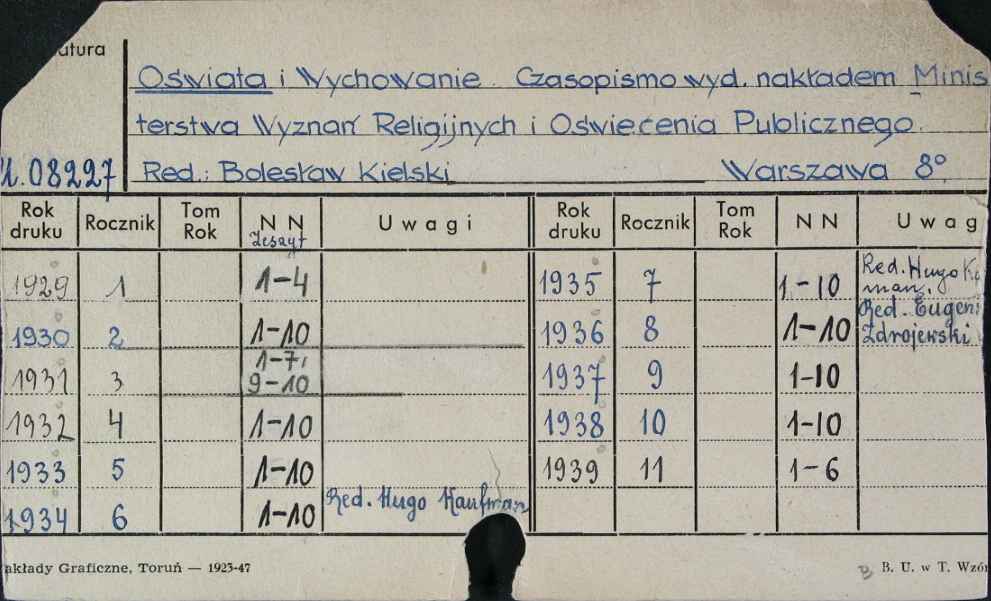 atura
Oświata i Wychowanie. Czasopismo wyd. nakładem Minis
terstwa Wyznań Religijnych i Oświecenia Publicznego.
08227 Red.: Bolesław Kielski Warszawa 8°
Rok druku Rocznik Tom Rok N N Zeszyt Uwagi Rok druku Rocznik Tom Rok N N Uwag
1929 1 1-4 1935 7 1-10 Red. Hugo Ka
man.
1930 2 1-10 1936 8 1-10 Red. Eugeni
Zdrojewski
1931 3 1-7, 9-10 1937 9 1-10
1932 4 1-10 1938 10 1-10
1933 5 1-10 1939 11 1-6
1934 6 1-10 Red. Hugo Kaufman
akłady Graficzne, Toruń — 1923-47 B. U. w T. Wzór